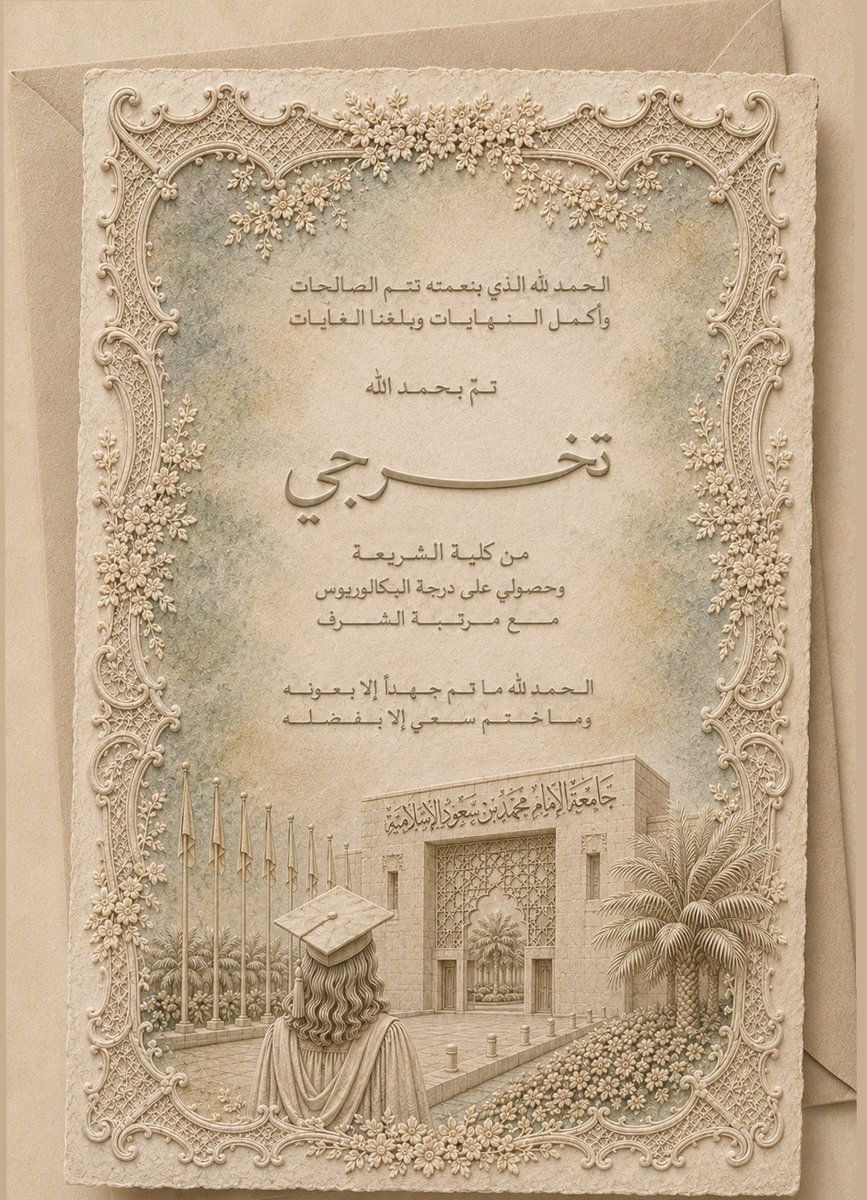 الحمد لله الذي بنعمته تتم الصالحات
وأكمل النهايات وبلغنا الغايات
تمّ بحمد الله
تخرجي
من كلية الشريعة
وحصولي على درجة البكالوريوس
مع مرتبة الشرف
الحمد لله ما تم جهداً إلا بعونه
وما ختم سعي إلا بفضله
جامعة الإمام محمد بن سعود الإسلامية